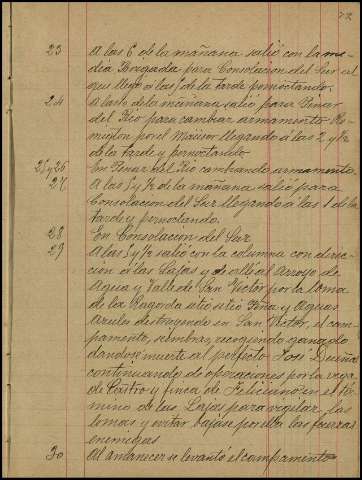 72
23 A las 6 de la mañana salió con la me-
dia Brigada para Consolacion del Sur al
que llegó a las 1 de la tarde pernoctando.
24 A las 6 de la mañana salio para Pinar
del Rio para cambiar armamento Re-
mington por el Mauser llegando á las 2 y ½
de la tarde y pernoctando
25 y 26 En Pinar del Rio cambiando armamento.
27 A las 5 y ½ de la mañana salió para
Consolacion del Sur llegando á las 1 de la
tarde y pernoctando.
28 En Consolacion del Sur
29 A las 5 y ½ salió con la columna con direc-
cion á las Lajas y de allí al Arroyo de
Agua y Valle de San Victor por la Loma
de la sitio Peña y Aguas
Azules destruyendo en San Victor, el cam-
pamento, siembras, recogiendo ganado
dandose muerte al prefecto José
continuando de operaciones por la vega
de Castro y finca de Feliciano en el tér-
mino de las Lajas para vigilar las
lomas y evitar bajase por ellas las fuerzas
enemigas
30 Al amanecer se levantó el campamento